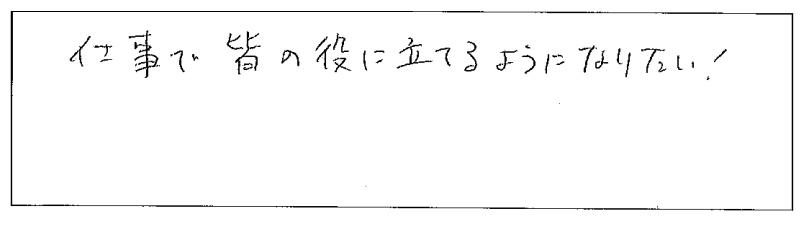 仕事で皆の役に立てるようになりたい！